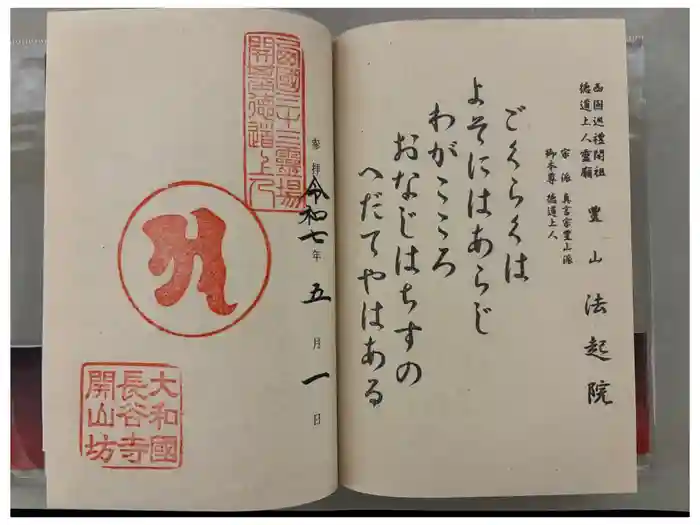 西国巡禮開祖
徳道上人靈廟
豊山 法起院
宗派 真言宗豊山派
御本尊 徳道上人
ごくらくは
よそにはあらじ
わがこころ
おなじはちすの
へだてやはある
参拝 令和七年五月一日
西國三十三霊場
開基徳道上人
大和國
長谷寺
開山坊